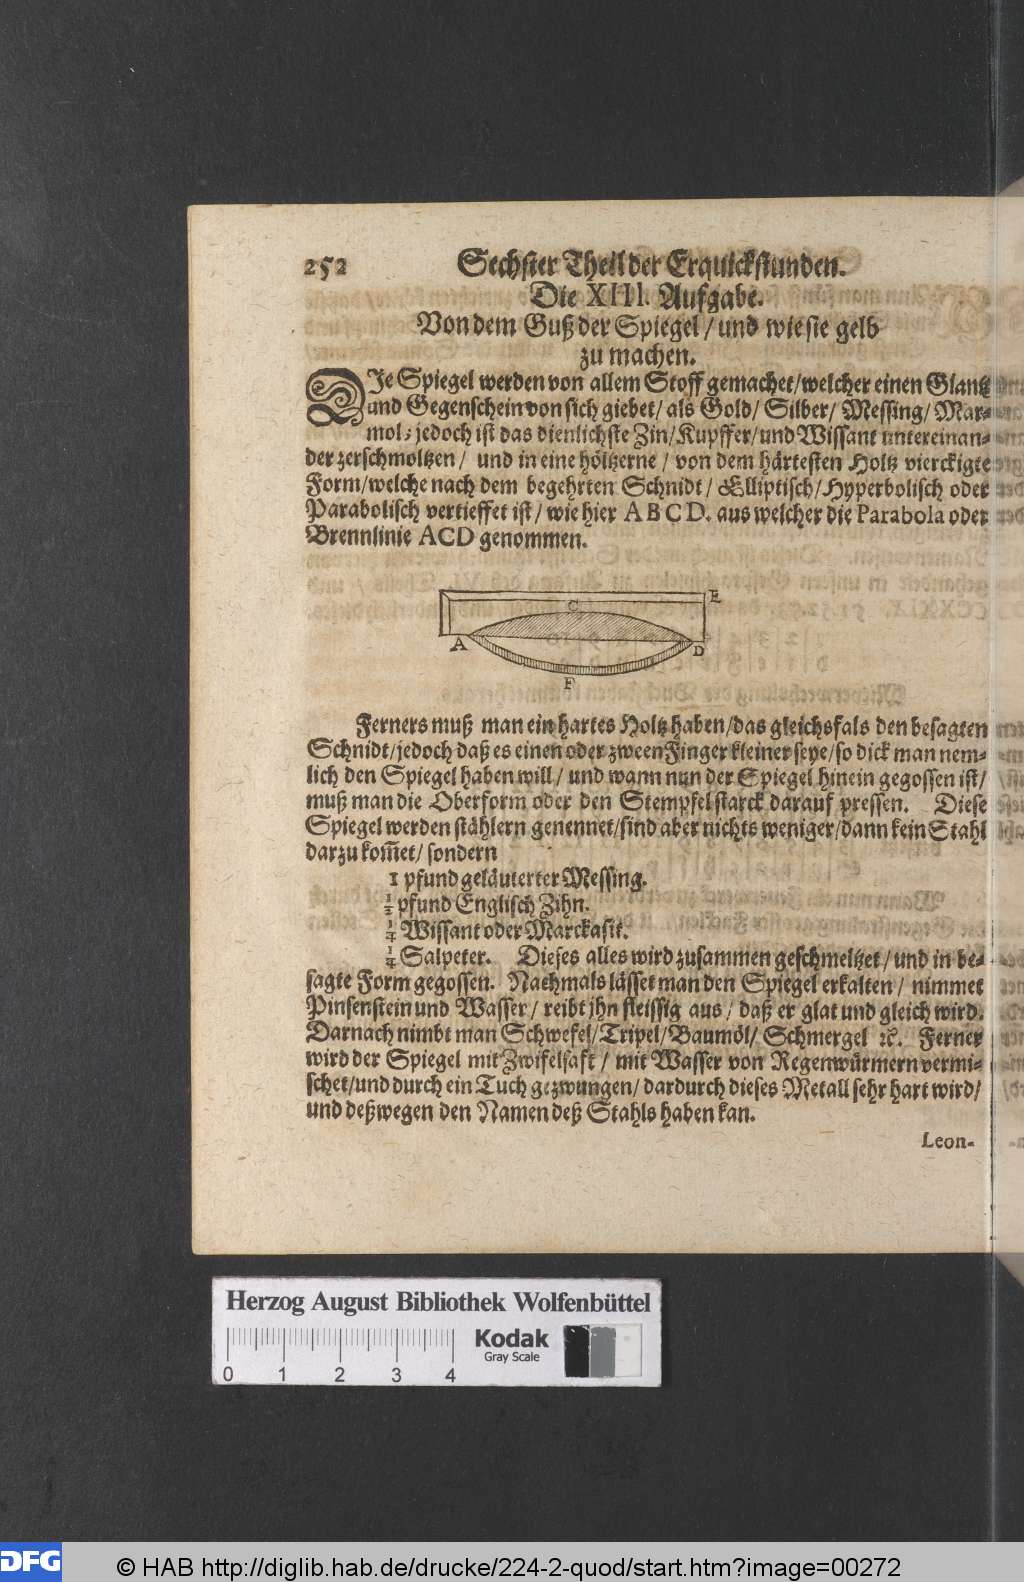 252 Sechster Theil der Erquickstunden.
Die XIII. Aufgabe.
Von dem Guß der Spiegel / und wie sie gelb
zu machen.
DJe Spiegel werden von allem Stoff gemachet/welcher einen Glantz
und Gegenschein von sich giebet/ als Gold/ Silber/ Messing/ Mar-
mol; jedoch ist das dienlichste Zin/Kupffer/und Wissant untereinan-
der zerschmoltzen / und in eine höltzerne / von dem härtesten Holtz vierckigte
Form/welche nach dem begehrten Schnidt / Elliptisch/Hyperbolisch oder
Parabolisch vertieffet ist/ wie hier A B C D. aus welcher die Parabola oder
Brennlinie ACD genommen.
E
C
A
D
F
Ferners muß man ein hartes Holtz haben/das gleichsfals den besagten
Schnidt/jedoch daß es einen oder zween Finger kleiner seye/so dick man nem-
lich den Spiegel haben will / und wann nun der Spiegel hinein gegossen ist/
muß man die Oberform oder den Stempfel starck darauf pressen. Diese
Spiegel werden stählern genennet/sind aber nichts weniger/dann kein Stahl
darzu kom̃et/ sondern
1 pfund geläuterter Messing.
½ pfund Englisch Zihn.
¼ Wissant oder Marckasit.
¼ Salpeter. Dieses alles wird zusammen geschmeltzet / und in be-
sagte Form gegossen. Nachmals lässet man den Spiegel erkalten / nimmet
Pinsenstein und Wasser / reibt jhn fleissig aus / daß er glat und gleich wird.
Darnach nimbt man Schwefel/Tripel/Baumöl/ Schmergel ꝛc. Ferner
wird der Spiegel mit Zwifelsaft / mit Wasser von Regenwürmern vermi-
schet/und durch ein Tuch gezwungen/ dardurch dieses Metall sehr hart wird/
und deßwegen den Namen deß Stahls haben kan.
Leon-
Herzog August Bibliothek Wolfenbüttel
Kodak
Gray Scale
0 1 2 3 4
DFG
© HAB http://diglib.hab.de/drucke/224-2-quod/start.htm?image=00272